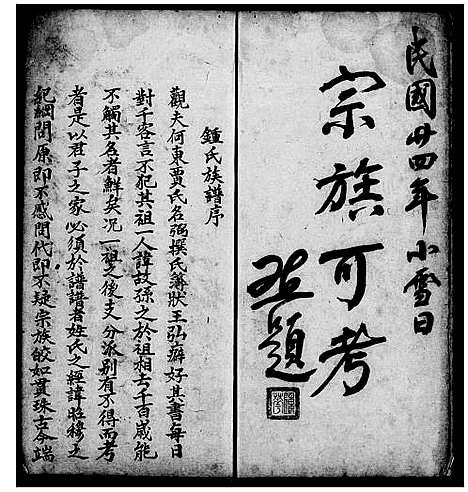 民國廿四年小雪日
宗族可考
題
鍾氏族譜序
觀夫何東賈氏名弼撰氏簿狀王弘癖好其書每日
對千客言不犯其祖一人諱故孫之於祖相去千百歲能
不觸其名者鮮矣况一祖之後支分派別有不得而考
者是以君子之家必須於譜譜者姓氏之經諱昭穆之
紀綱閱原即不惑閱代即不疑宗族皎如貫珠古今端